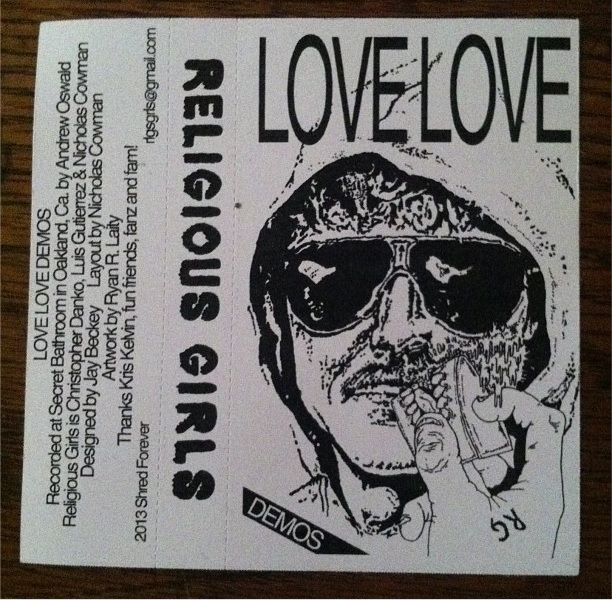 LOVE LOVE
DEMOS
RG
RELIGIOUS GIRLS
LOVE LOVE DEMOS
Recorded at Secret Bathroom in Oakland, Ca. by Andrew Oswald
Religious Girls is Christopher Danko, Luis Gutierrez & Nicholas Cowman
Designed by Jay Beckey Layout by Nicholas Cowman
Artwork by Ryan R. Laity
Thanks Kris Kelvin, fun friends, fanz and fam!
2013 Shred Forever rlgsgrls@gmail.com